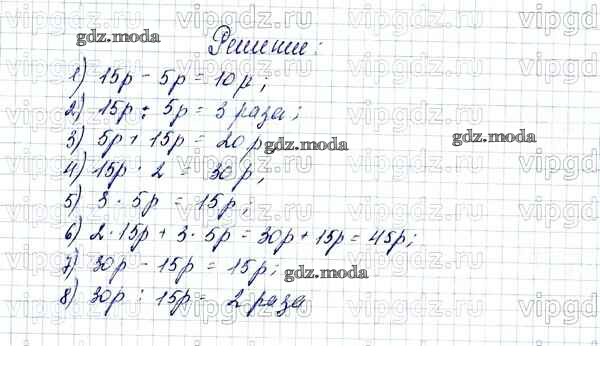 Решение:
1) 15р - 5р = 10р;
2) 15р : 5р = 3 раза;
3) 5р + 15р = 20р;
4) 15р · 2 = 30р;
5) 3 · 5р = 15р;
6) 2 · 15р + 3 · 5р = 30р + 15р = 45р;
7) 30р - 15р = 15р;
8) 30р : 15р = 2 раза
gdz.moda
gdz.moda
gdz.moda
gdz.moda
vipgdz.ru